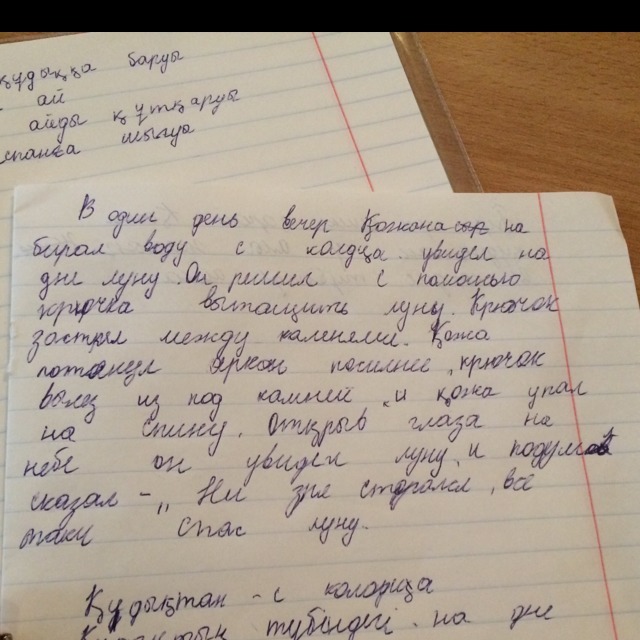 құдыққа баруы
ай
айды құтқаруы
шығуы
В один день вечер Қожнана на
бирал воду с каодца. увидел на
дне луну. Он решил с помошью
крючка вытащить луну. Крючок
застрял между камнеми. Қожа
потянул аркан посилнее, крючок
вылез из под камней, и қожа упал
на спину. Открыв глаза на
небе он увидел луну, и подумав
сказал - „ Ни зря старался, всё
таки спас луну.
Құдықтан - с колодица
түбіндегі - на дне